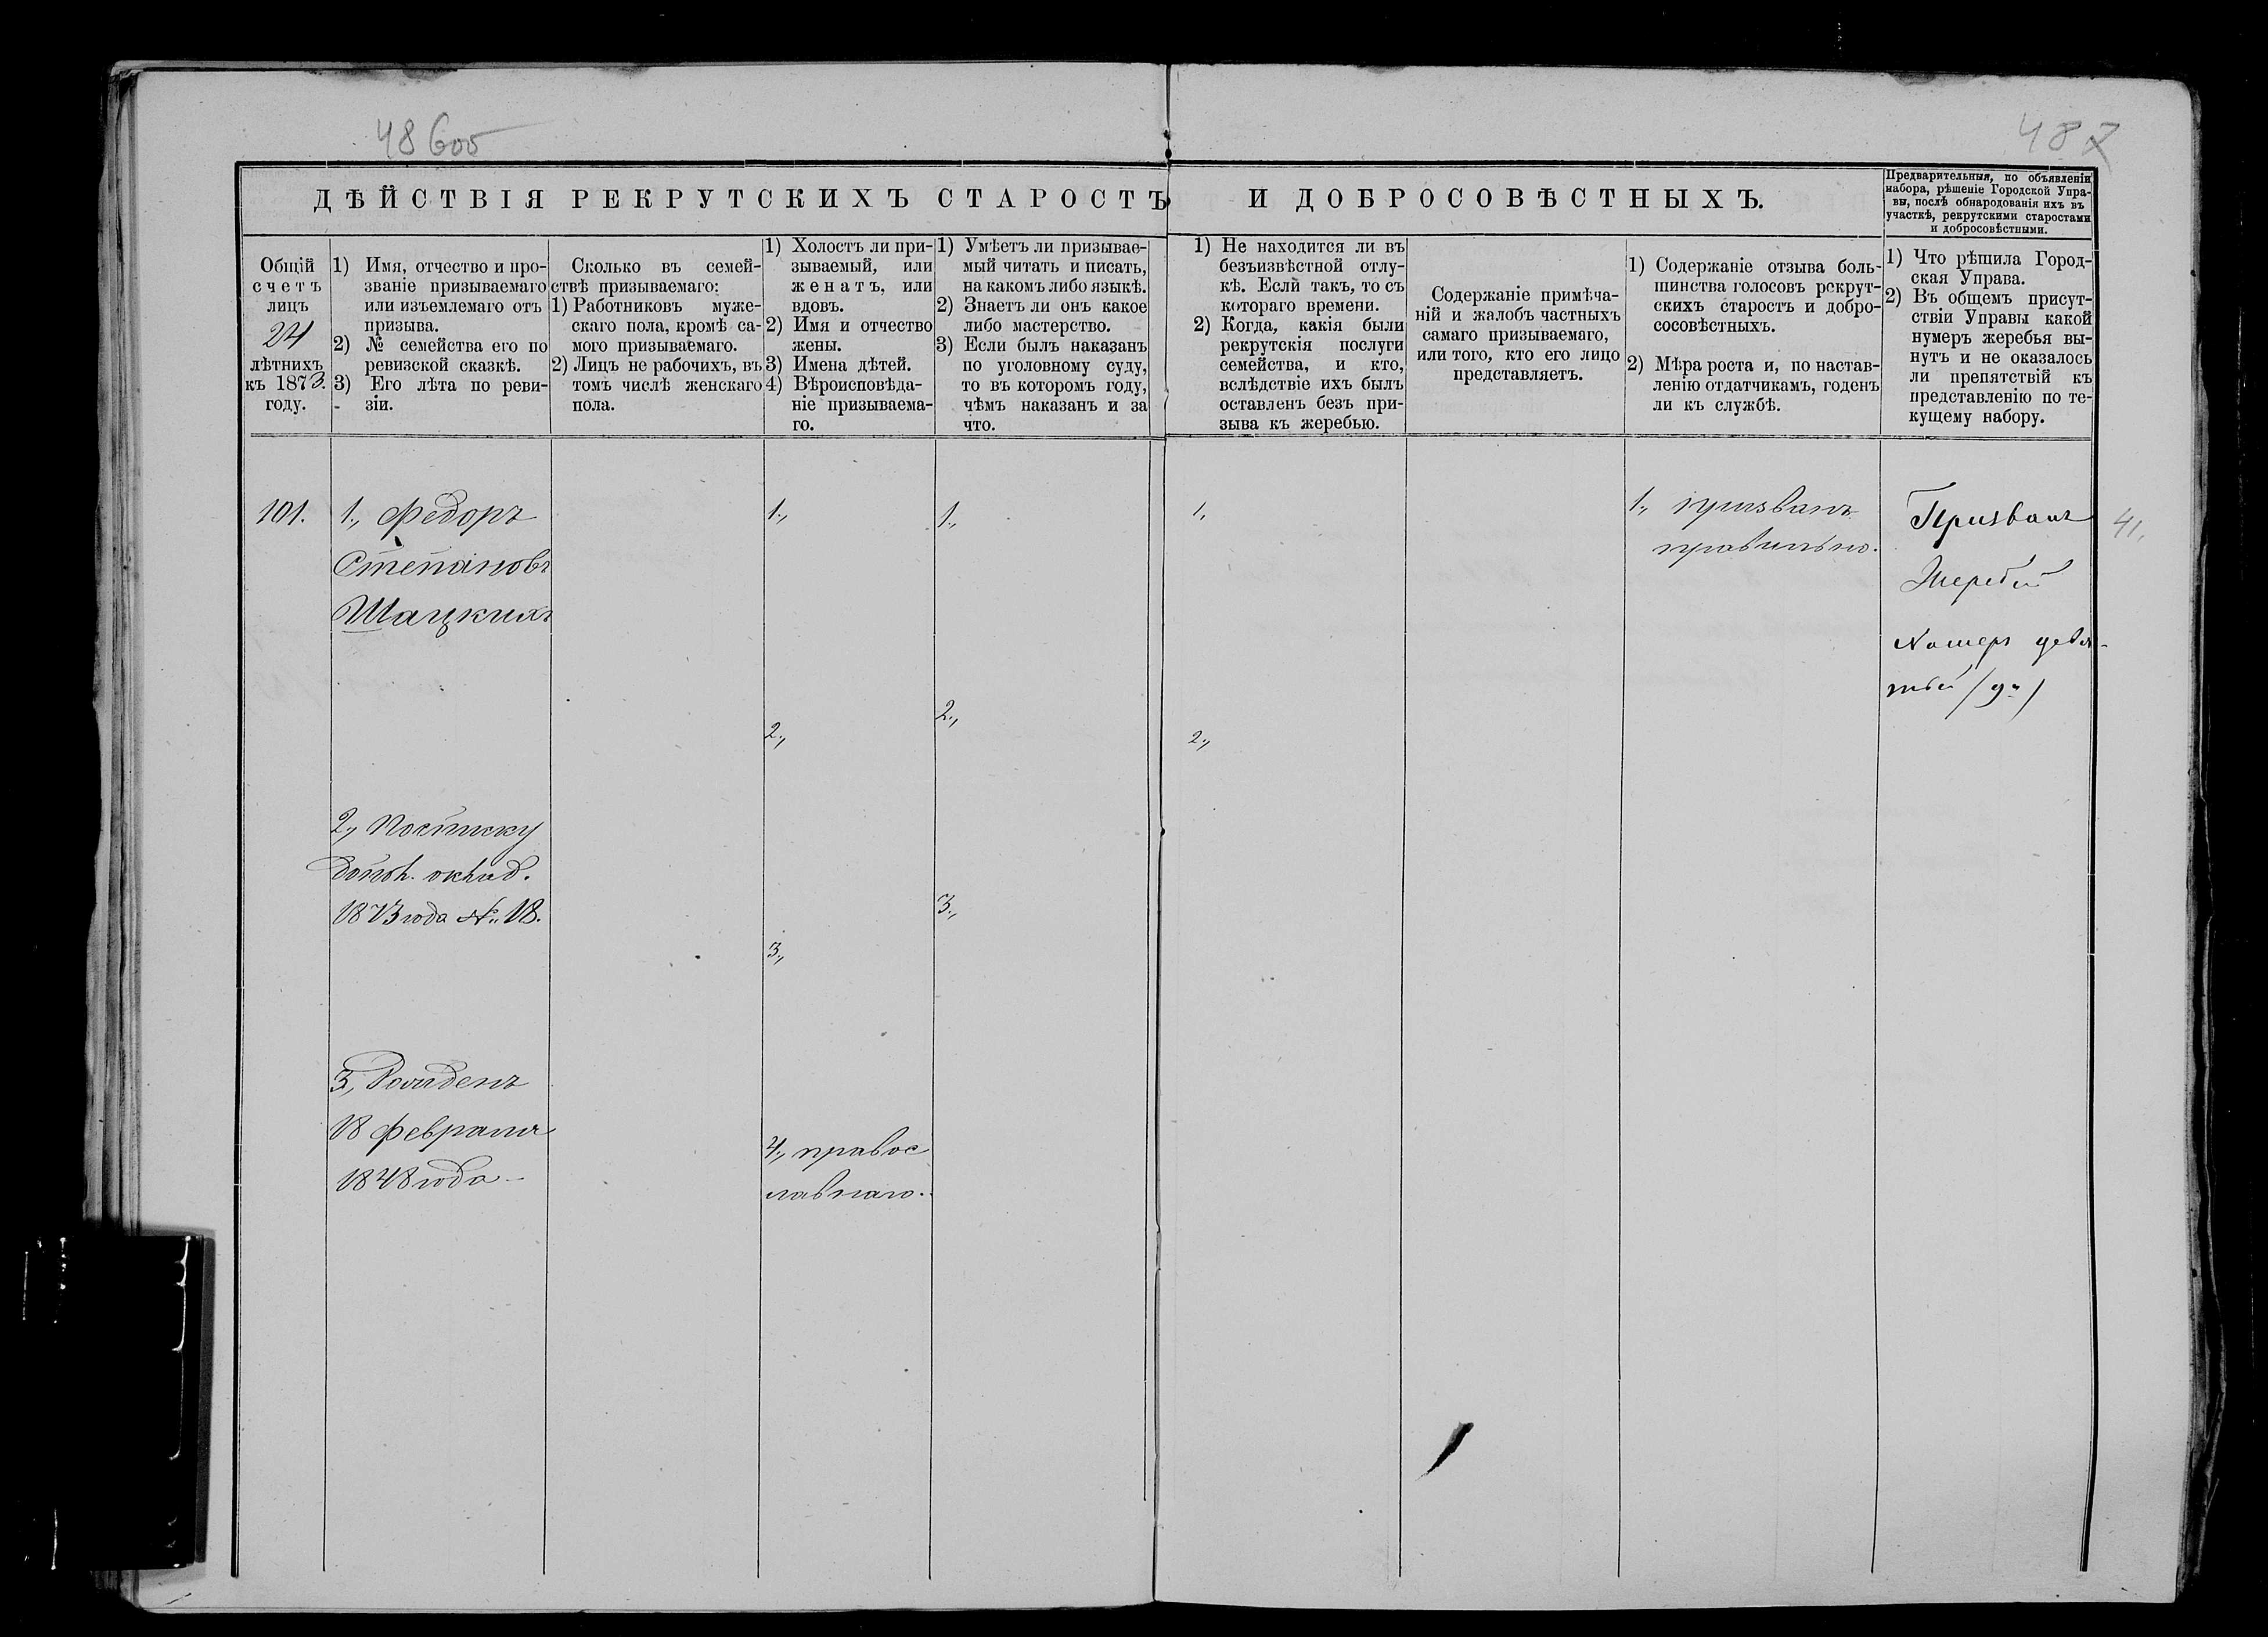 48 боб
48 X
ДѢЙСТВІЯ РЕКРУТСКИХЪ СТАРОСТЪ И ДОБРОСОВѢСТНЫХЪ.
Предварительныя, по объявленіи
набора, рѣшеніе Городской Упра-
вы, послѣ обнародованія ихъ въ
участкѣ, рекрутскими старостами
и добросовѣстными.
Общій
счетъ
лицъ
24
лѣтнихъ
къ 1873.
году.
1) Имя, отчество и про-
званіе призываемаго
или изъемлемаго отъ
призыва.
2) № семейства его по
ревизской сказкѣ.
3) Его лѣта по реви-
зіи.
Сколько въ семей-
ствѣ призываемаго:
1) Работниковъ муже-
скаго пола, кромѣ са-
мого призываемаго.
2) Лицъ не рабочихъ, въ
томъ числѣ женскаго
пола.
1) Холостъ ли при-
зываемый, или
женатъ, или
вдовъ.
2) Имя и отчество
жены.
3) Имена дѣтей.
4) Вѣроисповѣда-
ніе призываема-
го.
1) Умѣетъ ли призывае-
мый читать и писать,
на какомъ либо языкѣ.
2) Знаетъ ли онъ какое
либо мастерство.
3) Если былъ наказанъ
по уголовному суду,
то въ которомъ году,
чѣмъ наказанъ и за
что.
1) Не находится ли въ
безъизвѣстной отлу-
кѣ. Если такъ, то съ
котораго времени.
2) Когда, какія были
рекрутскія послуги
семейства, и кто,
вслѣдствіе ихъ былъ
оставленъ безъ при-
зыва къ жеребью.
Содержаніе примѣча-
ній и жалобъ частныхъ
самаго призываемаго,
или того, кто его лицо
представляетъ.
1) Содержаніе отзыва боль-
шинства голосовъ рекрут-
скихъ старостъ и добро-
сосовѣстныхъ.
2) Мѣра роста и, по настав-
ленію отдатчикамъ, годенъ
ли къ службѣ.
1) Что рѣшила Город-
ская Управа.
2) Въ общемъ присут-
ствіи Управы какой
нумеръ жеребья вы-
нутъ и не оказалось
ли препятствій къ
представленію по те-
кущему набору.
101.
1., Федоръ
Степановъ
Шацкихъ
2., По списку
допол. оклад.
1873 года №. 18.
3., Рожденъ
18 февраля
1848 года
1.,
2.,
3.,
4., правос
лавнаго.
1.,
2.,
3.,
1,
2.,
1., призванъ
правильно.
Призванъ
Жеребій
Номеръ девя-
тый (9й)
41,